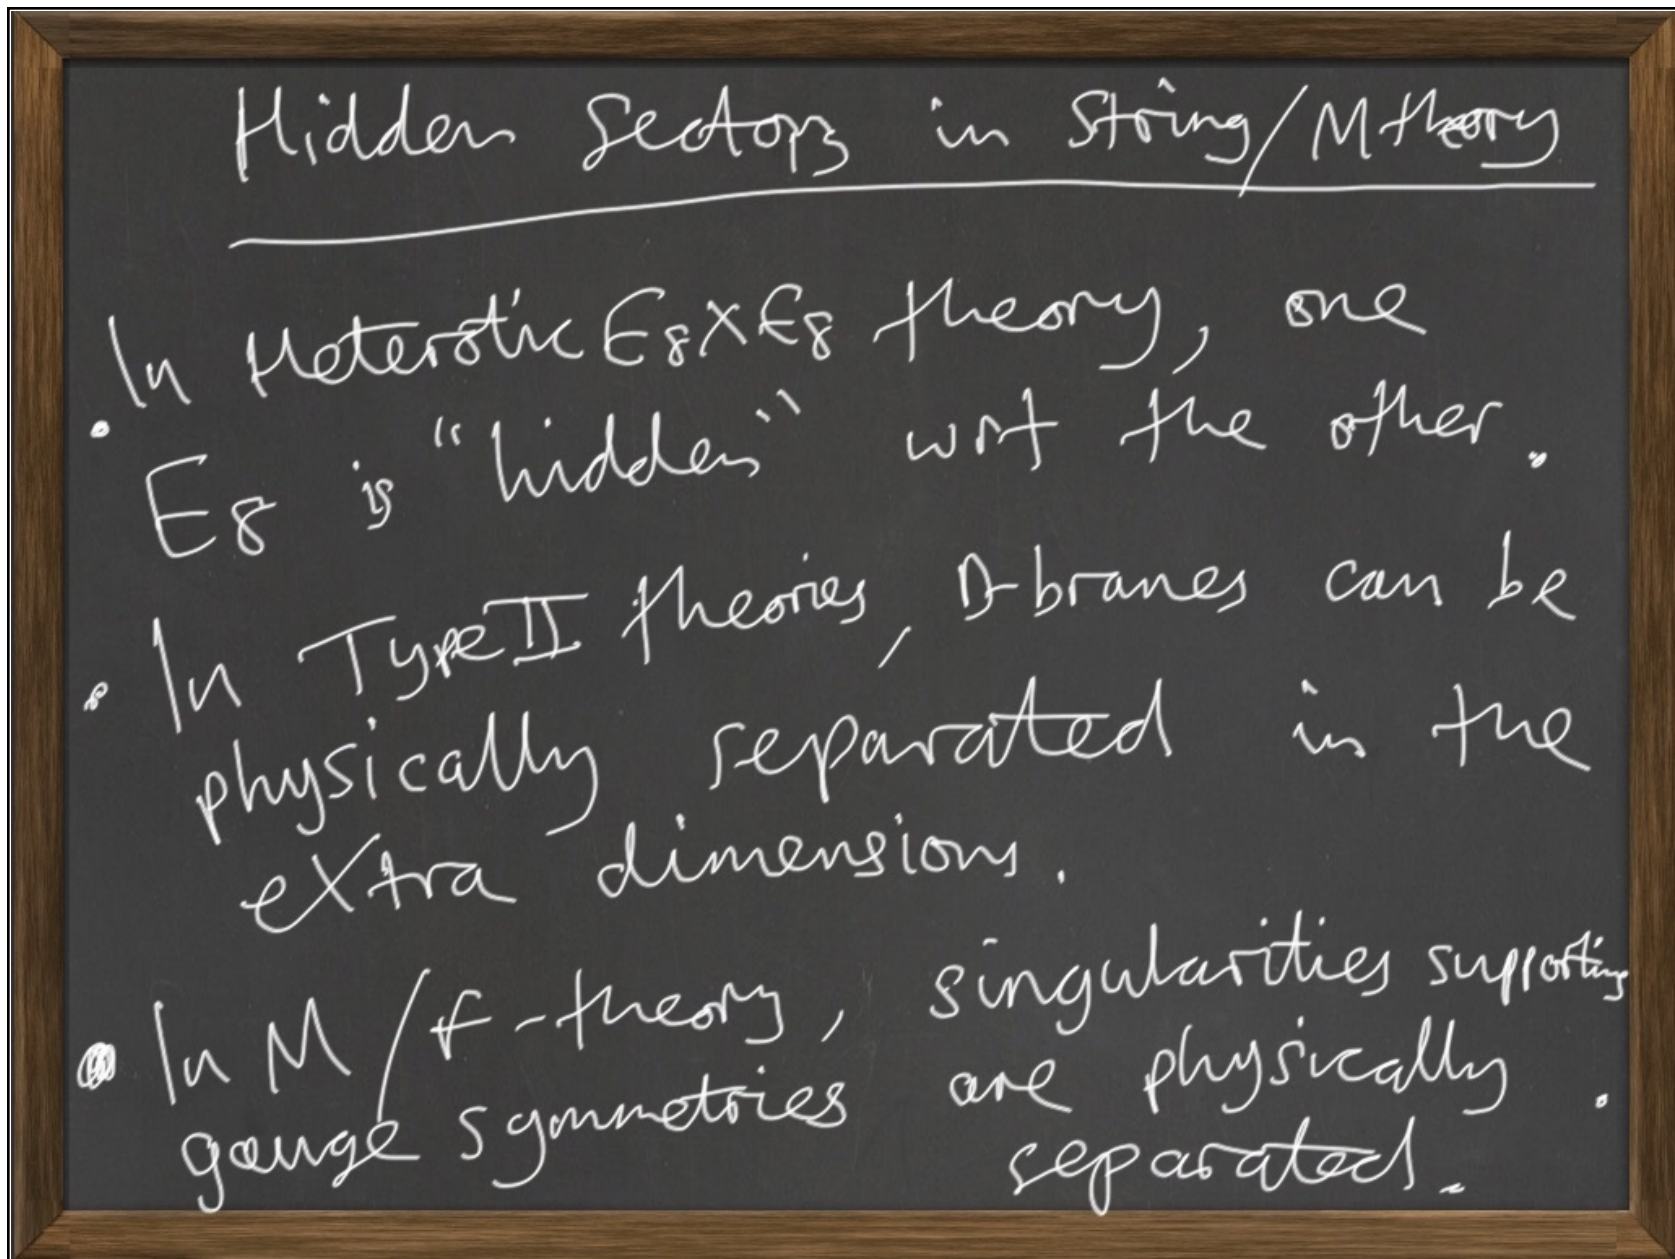 Hidden Sectors in String/M theory
• In Heterotic E8XE8 theory, one
E8 is "hidden" wrt the other.
• In Type II theories, D-branes can be
physically separated in the
extra dimensions.
• In M/F-theory, singularities supporting
gauge symmetries are physically
separated.